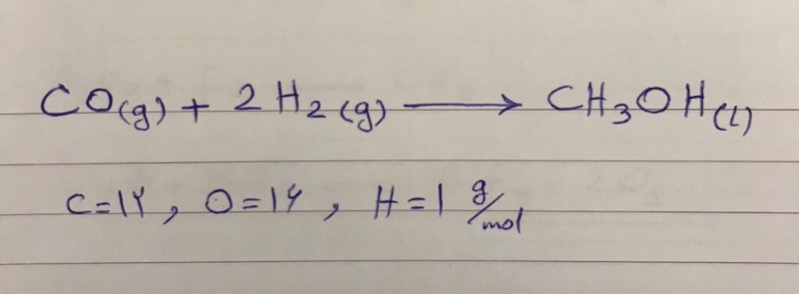 CO(g) + 2H₂(g) ⟶ CH₃OH(l)
C=۱۲ , O=۱۶ , H=۱ g/mol